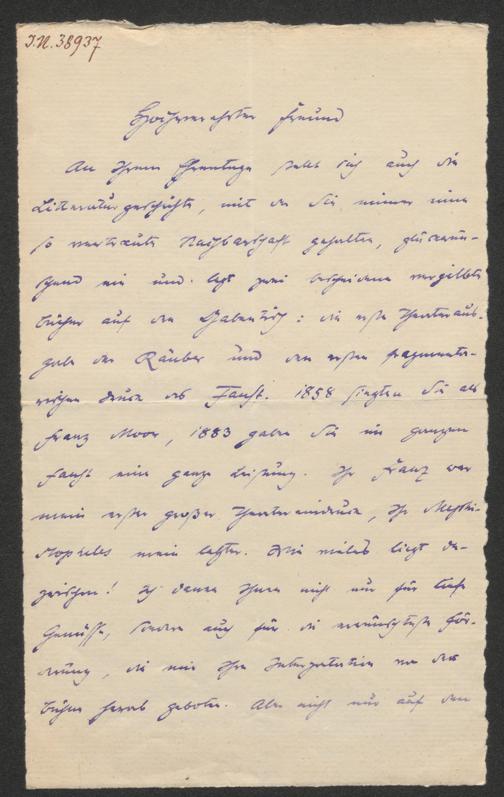 I.N. 38937
Hochverehrter Freund
An Ihrem Ehrentage stellt sich auch die
Litteraturgeschichte, mit der Sie immer eine
so vertraute Nachbarschaft gehalten, glückwün-
schend ein und legt zwei bescheidene vergilbte
Bücher auf den Gabentisch: die erste Theateraus-
gabe der Räuber und den ersten fragmenta-
rischen Druck des Faust. 1858 siegten Sie als
Franz Moor, 1883 gaben Sie im ganzen
Faust eine ganze Leistung. Ihr Franz war
mein erster großer Theatereindruck, Ihr Mephi-
stopheles mein letzter. Wie vieles liegt da-
zwischen! Ich danke Ihnen nicht nur für tiefe
Genüsse, sondern auch für die erwünschteste För-
derung, die mir Ihre Interpretation von der
Bühne herab geboten. Aber nicht nur auf den